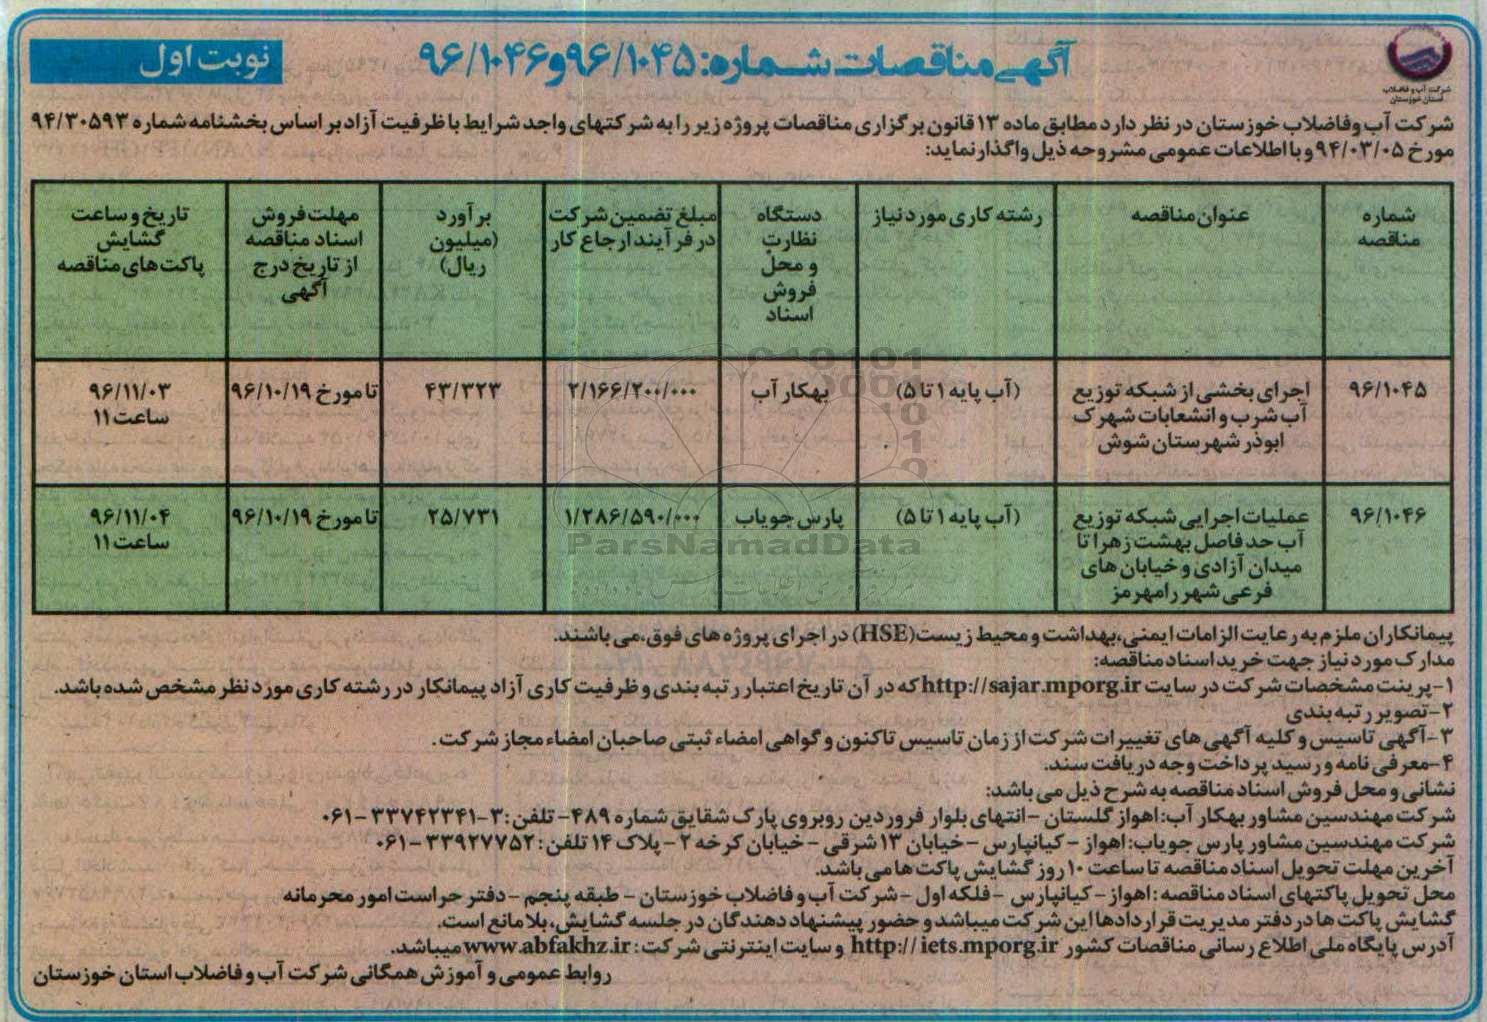 شرکت آب و فاضلاب
استان خوزستان
آگهی مناقصات شماره: ۹۶/۱۰۴۵و۹۶/۱۰۴۶
نوبت اول
شرکت آب وفاضلاب خوزستان در نظر دارد مطابق ماده ۱۳ قانون برگزاری مناقصات پروژه زیر را به شرکتهای واجد شرایط با ظرفیت آزاد بر اساس بخشنامه شماره ۹۴/۳۰۵۹۳
مورخ ۹۴/۰۳/۰۵ و با اطلاعات عمومی مشروحه ذیل واگذار نماید:
شماره مناقصه | عنوان مناقصه | رشته کاری مورد نیاز | دستگاه نظارت و محل فروش اسناد | مبلغ تضمین شرکت در فرآیند ارجاع کار | برآورد (میلیون ریال) | مهلت فروش اسناد مناقصه از تاریخ درج آگهی | تاریخ و ساعت گشایش پاکت های مناقصه
۹۶/۱۰۴۵ | اجرای بخشی از شبکه توزیع آب شرب و انشعابات شهرک ابوذر شهرستان شوش | (آب پایه ۱ تا ۵) | بهکار آب | ۲/۱۶۶/۲۰۰/۰۰۰ | ۴۳/۳۲۳ | تا مورخ ۹۶/۱۰/۱۹ | ۹۶/۱۱/۰۳ ساعت ۱۱
۹۶/۱۰۴۶ | عملیات اجرایی شبکه توزیع آب حد فاصل بهشت زهرا تا میدان آزادی و خیابان های فرعی شهر رامهرمز | (آب پایه ۱ تا ۵) | پارس جویاب | ۱/۲۸۶/۵۹۰/۰۰۰ | ۲۵/۷۳۱ | تا مورخ ۹۶/۱۰/۱۹ | ۹۶/۱۱/۰۴ ساعت ۱۱
ParsNamadData
پیمانکاران ملزم به رعایت الزامات ایمنی،بهداشت و محیط زیست(HSE) در اجرای پروژه های فوق،می باشند.
مدارک مورد نیاز جهت خرید اسناد مناقصه:
۱-پرینت مشخصات شرکت در سایت http://sajar.mporg.ir که در آن تاریخ اعتبار رتبه بندی و ظرفیت کاری آزاد پیمانکار در رشته کاری مورد نظر مشخص شده باشد.
۲-تصویر رتبه بندی
۳-آگهی تاسیس و کلیه آگهی های تغییرات شرکت از زمان تاسیس تاکنون و گواهی امضاء ثبتی صاحبان امضاء مجاز شرکت.
۴-معرفی نامه و رسید پرداخت وجه دریافت سند.
نشانی و محل فروش اسناد مناقصه به شرح ذیل می باشد:
شرکت مهندسین مشاور بهکار آب: اهواز گلستان -انتهای بلوار فروردین روبروی پارک شقایق شماره ۴۸۹- تلفن: ۳-۳۳۷۴۲۳۴۱ -۰۶۱
شرکت مهندسین مشاور پارس جویاب: اهواز - کیانپارس - خیابان ۱۳ شرقی - خیابان کرخه ۲ - پلاک ۱۴ تلفن: ۳۳۹۲۷۷۵۲ -۰۶۱
آخرین مهلت تحویل اسناد مناقصه تا ساعت ۱۰ روز گشایش پاکت ها می باشد.
محل تحویل پاکتهای اسناد مناقصه : اهواز - کیانپارس - فلکه اول - شرکت آب و فاضلاب خوزستان - طبقه پنجم - دفتر حراست امور محرمانه
گشایش پاکت ها در دفتر مدیریت قراردادها این شرکت میباشد و حضور پیشنهاد دهندگان در جلسه گشایش،بلامانع است.
آدرس پایگاه ملی اطلاع رسانی مناقصات کشور http:// iets.mporg.ir و سایت اینترنتی شرکت: www.abfakhz.ir میباشد.
روابط عمومی و آموزش همگانی شرکت آب و فاضلاب استان خوزستان